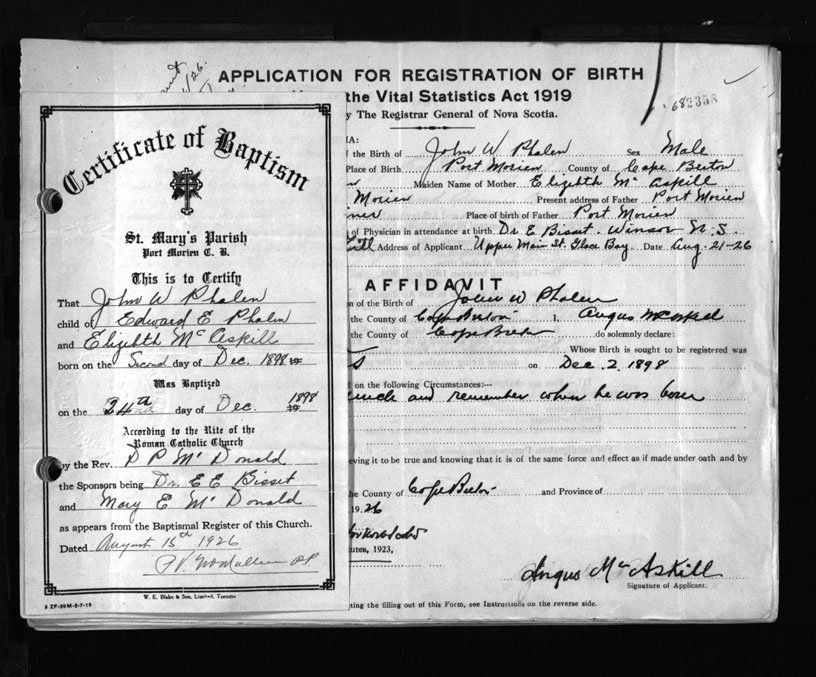 Certificate of Baptism
St. Mary's Parish
Port Morien C. B.
This is to Certify
That John W Phalen
child of Edward E Phalen
and Elizibth Mc Askill
born on the Second day of Dec. 1898
Was Baptized
on the 24th day of Dec. 1898
According to the Rite of the
Roman Catholic Church
by the Rev. D P Mc Donald
the Sponsors being Dr. E E Bisset
and Mary E Mc Donald
as appears from the Baptismal Register of this Church.
Dated August 15th 1926
P.P.
W. E. Blake & Son, Limited, Toronto
APPLICATION FOR REGISTRATION OF BIRTH
the Vital Statistics Act 1919
y The Registrar General of Nova Scotia.
682358
IA:
f the Birth of John W Phalen Sex Male
Place of Birth Port Morien County of Cape Breton
Maiden Name of Mother Elizibth Mc Askill
Morien Present address of Father Port Morien
Place of birth of Father Port Morien
of Physician in attendance at birth Dr. E Bisset Winsor N. S.
Address of Applicant Upper Main St. Glace Bay. Date Aug-21-26
AFFIDAVIT
n of the Birth of John W Phalen
the County of Cape Breton I, Angus McAskel
the County of Cape Breton do solemnly declare:
Whose Birth is sought to be registered was
on Dec. 2, 1898
on the following Circumstances:—
uncle and remember when he was born
eving it to be true and knowing that it is of the same force and effect as if made under oath and by
he County of Cape Breton and Province of
19 26
utes, 1923,
Angus Mc Askill
Signature of Applicant.
ting the filling out of this Form, see Instructions on the reverse side.